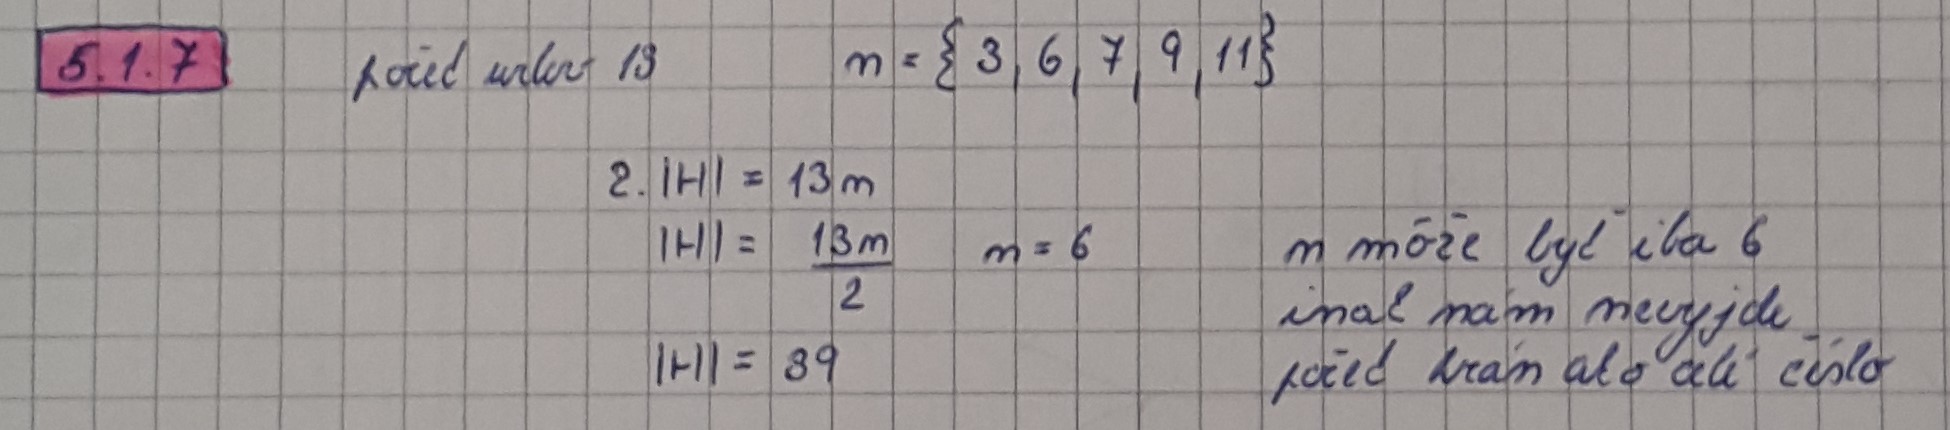 5.1.7 počet vrcholov 13 n = {3, 6, 7, 9, 11}
2.|H| = 13n
|H| = 13n/2 n = 6 n môže byť iba 6
inak nám nevyjde
|H| = 39 počet hrán ako celé číslo